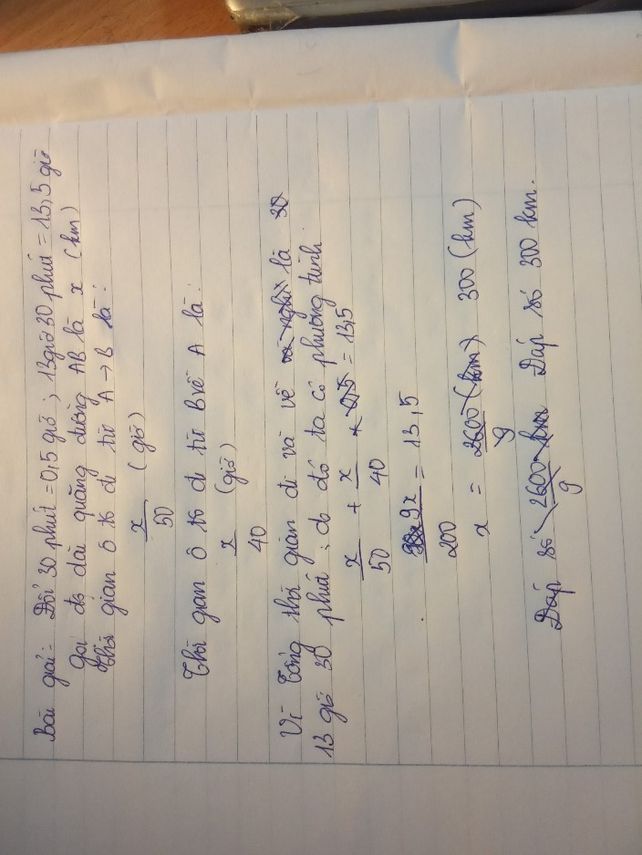 Bài giải: Đổi 30 phút = 0,5 giờ ; 13giờ 30 phút = 13,5 giờ
Gọi độ dài quãng đường AB là x (km)
Thời gian ô tô đi từ A → B là:
x/50 (giờ)
Thời gian ô tô đi từ B về A là:
x/40 (giờ)
Vì tổng thời gian đi và về và nghỉ là 30
13 giờ 30 phút : do đó ta có phương trình:
x/50 + x/40 + 0,5 = 13,5
9x/200 = 13,5
x = 2600/9 (km) 300 (km)
Đáp số 2600/9 km Đáp số 300 km.